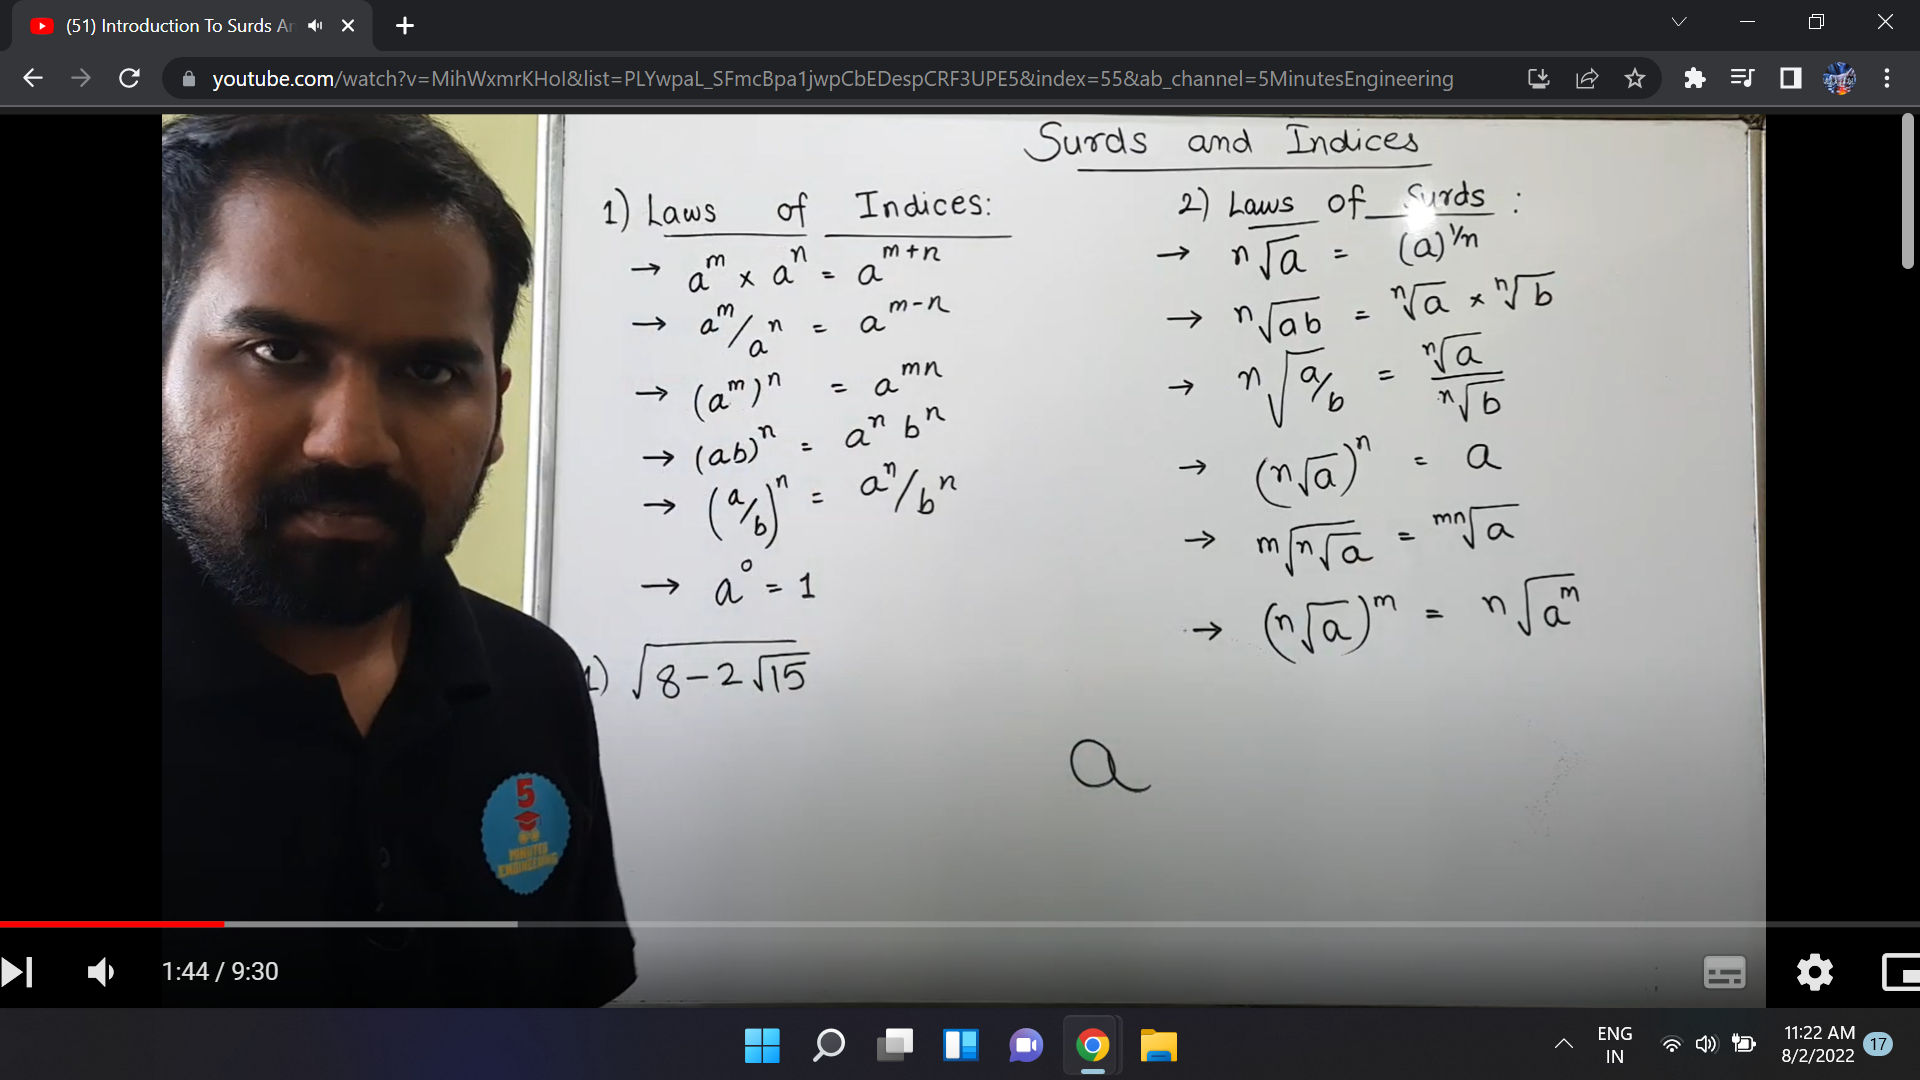 (51) Introduction To Surds Ar
youtube.com/watch?v=MihWxmrKHoI&list=PLYwpaL_SFmcBpa1jwpCbEDespCRF3UPE5&index=55&ab_channel=5MinutesEngineering
Surds and Indices
1) Laws of Indices:
→ a^m × a^n = a^{m+n}
→ a^m/a^n = a^{m-n}
→ (a^m)^n = a^{mn}
→ (ab)^n = a^n b^n
→ (a/b)^n = a^n/b^n
→ a^0 = 1
1) √(8-2√15)
2) Laws of Surds :
→ n√a = (a)^{1/n}
→ n√ab = n√a × n√b
→ n√(a/b) = n√a / n√b
→ (n√a)^n = a
→ m√(n√a) = mn√a
→ (n√a)^m = n√(a^m)
a
5
MINUTES
ENGINEERING
1:44 / 9:30
ENG
IN
11:22 AM
8/2/2022
17